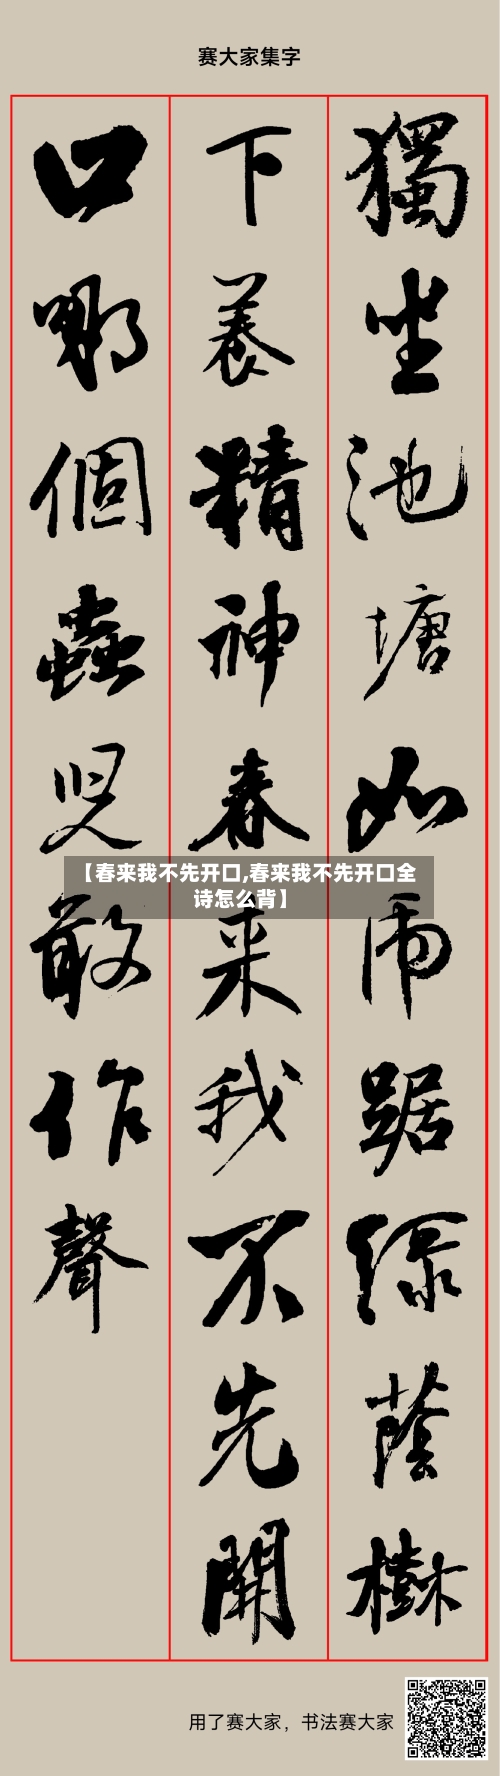 赛大家集字
獨坐池塘如虎踞綠蔭樹
下養精神春来我不先開
口哪個蟲兒敢作聲
【春来我不先开口,春来我不先开口全
诗怎么背】
用了赛大家，书法赛大家